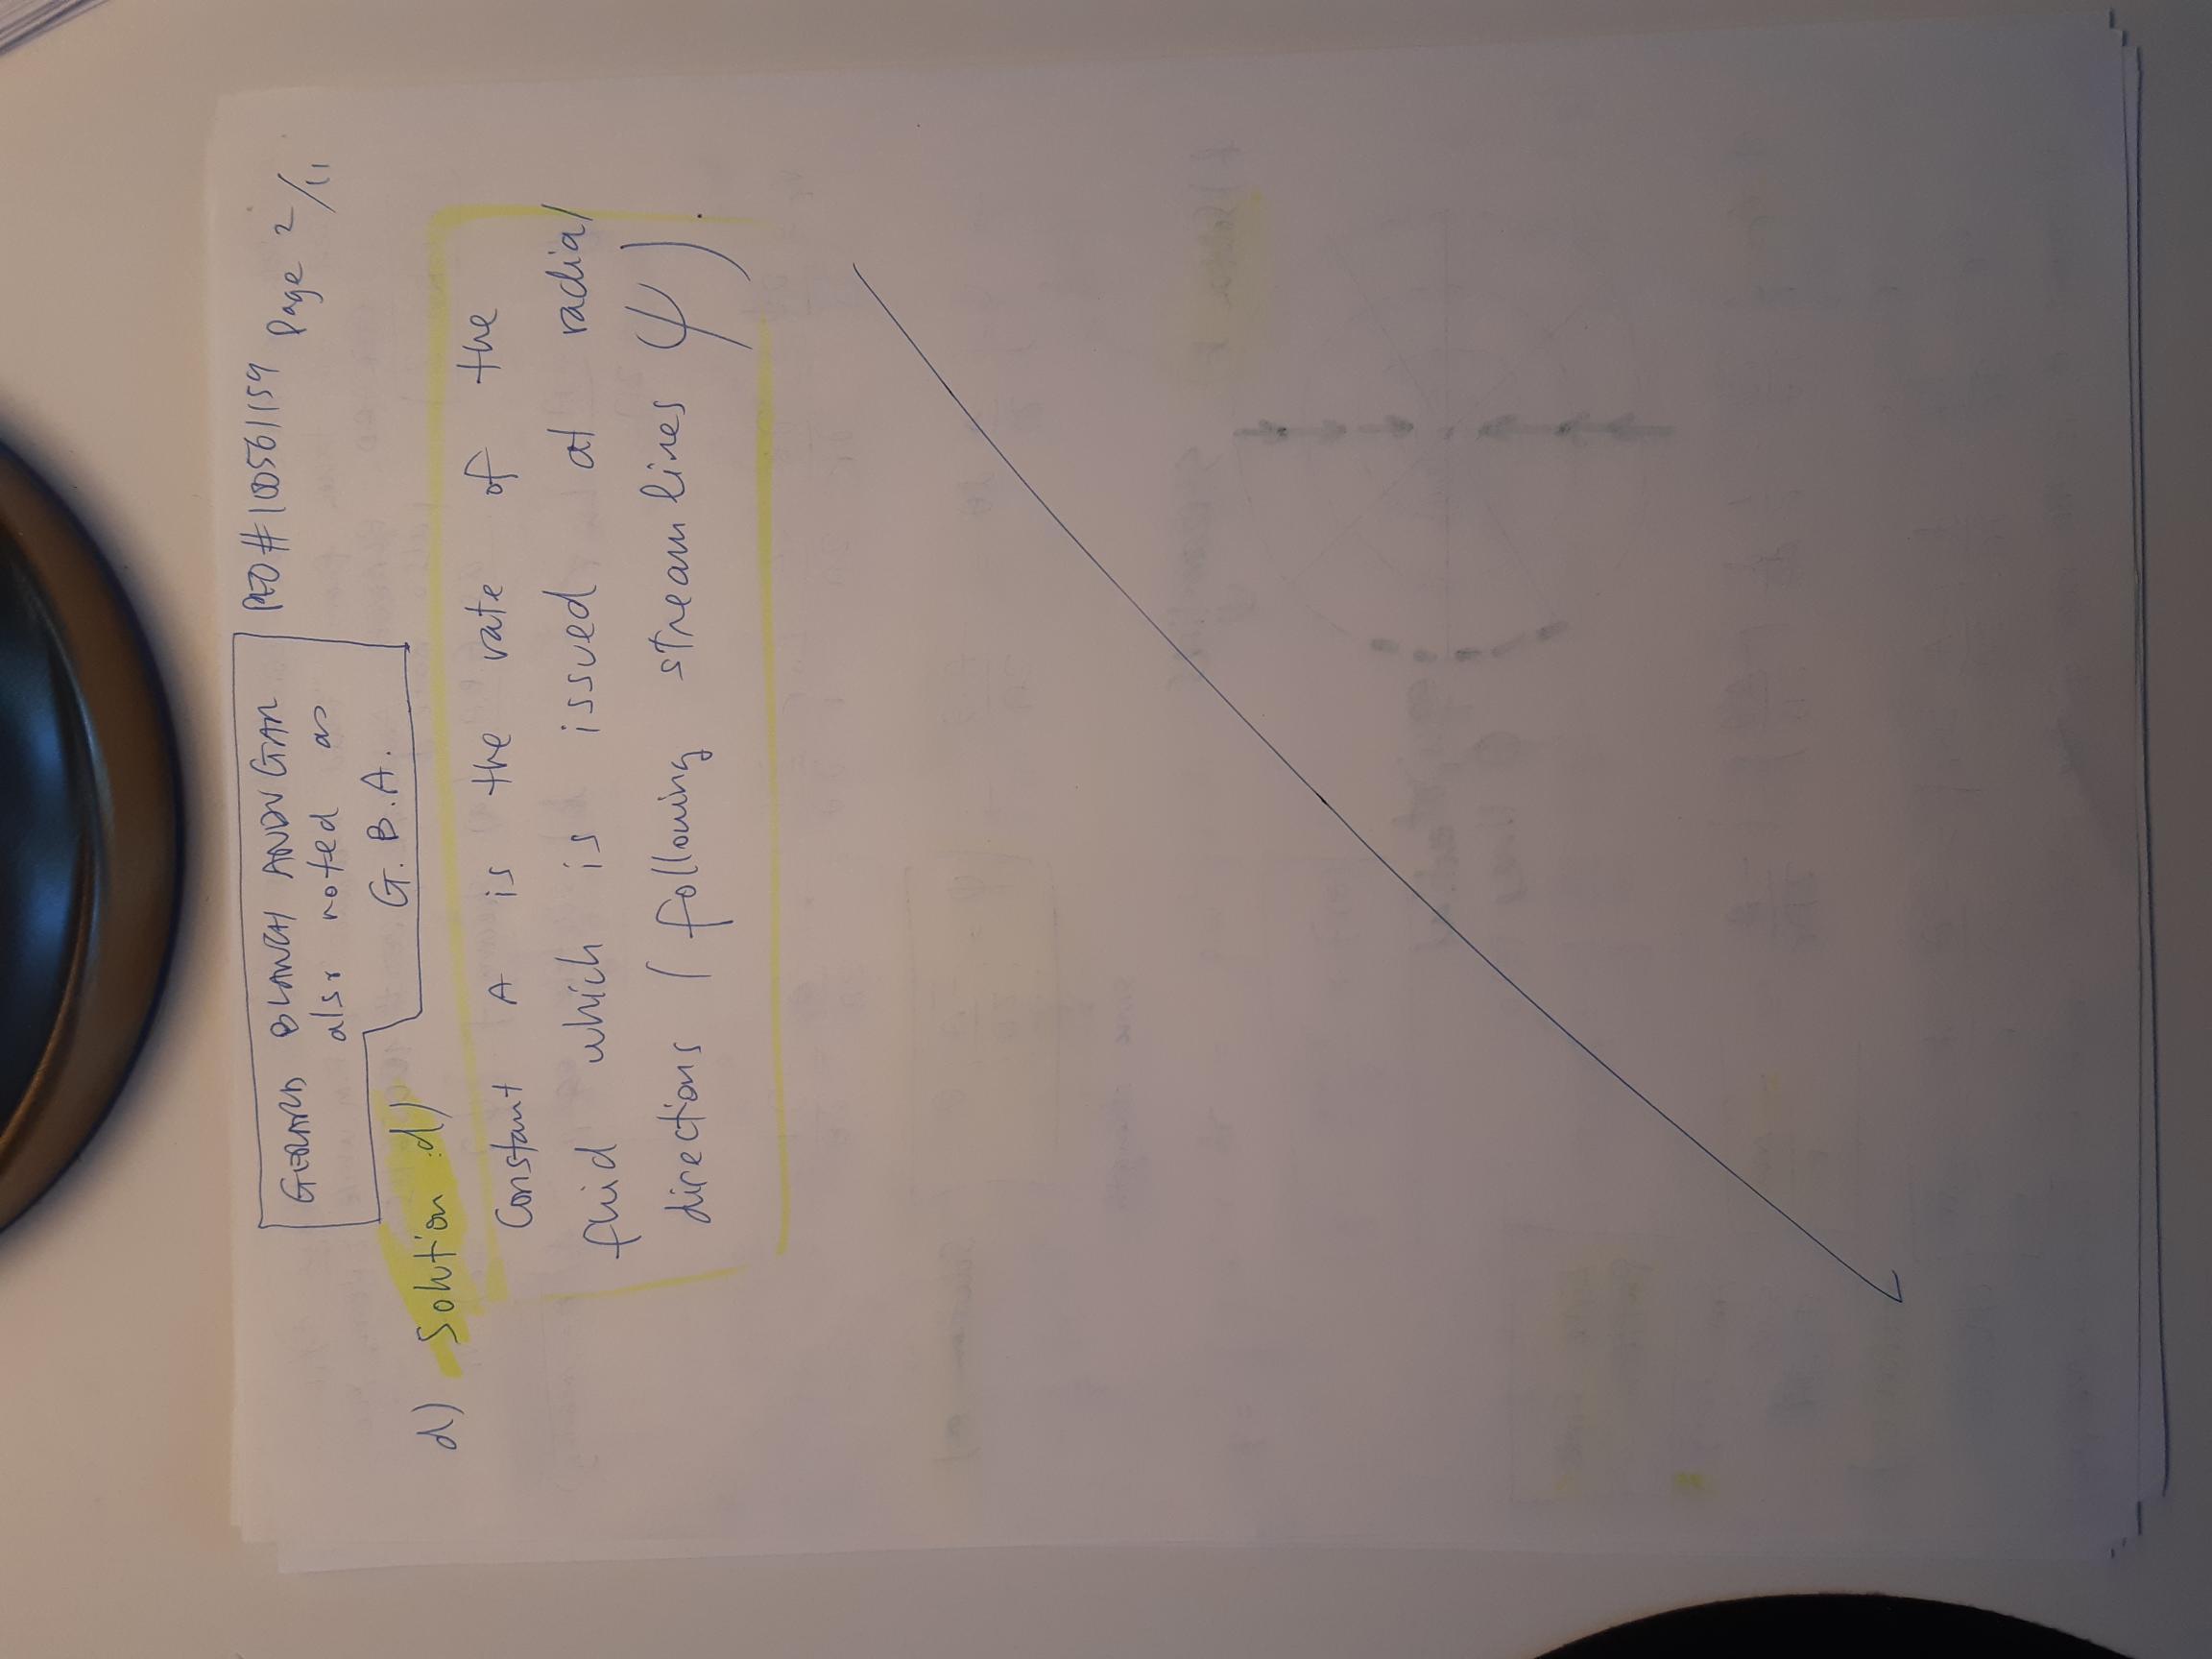 GERARD BLANCH ANDUGAR
also noted as
G. B. A.
PEO # 100561159 Page 2/11
d) Solution d)
Constant A is the rate of the
fluid which is issued at radial
directions (following streamlines ψ).